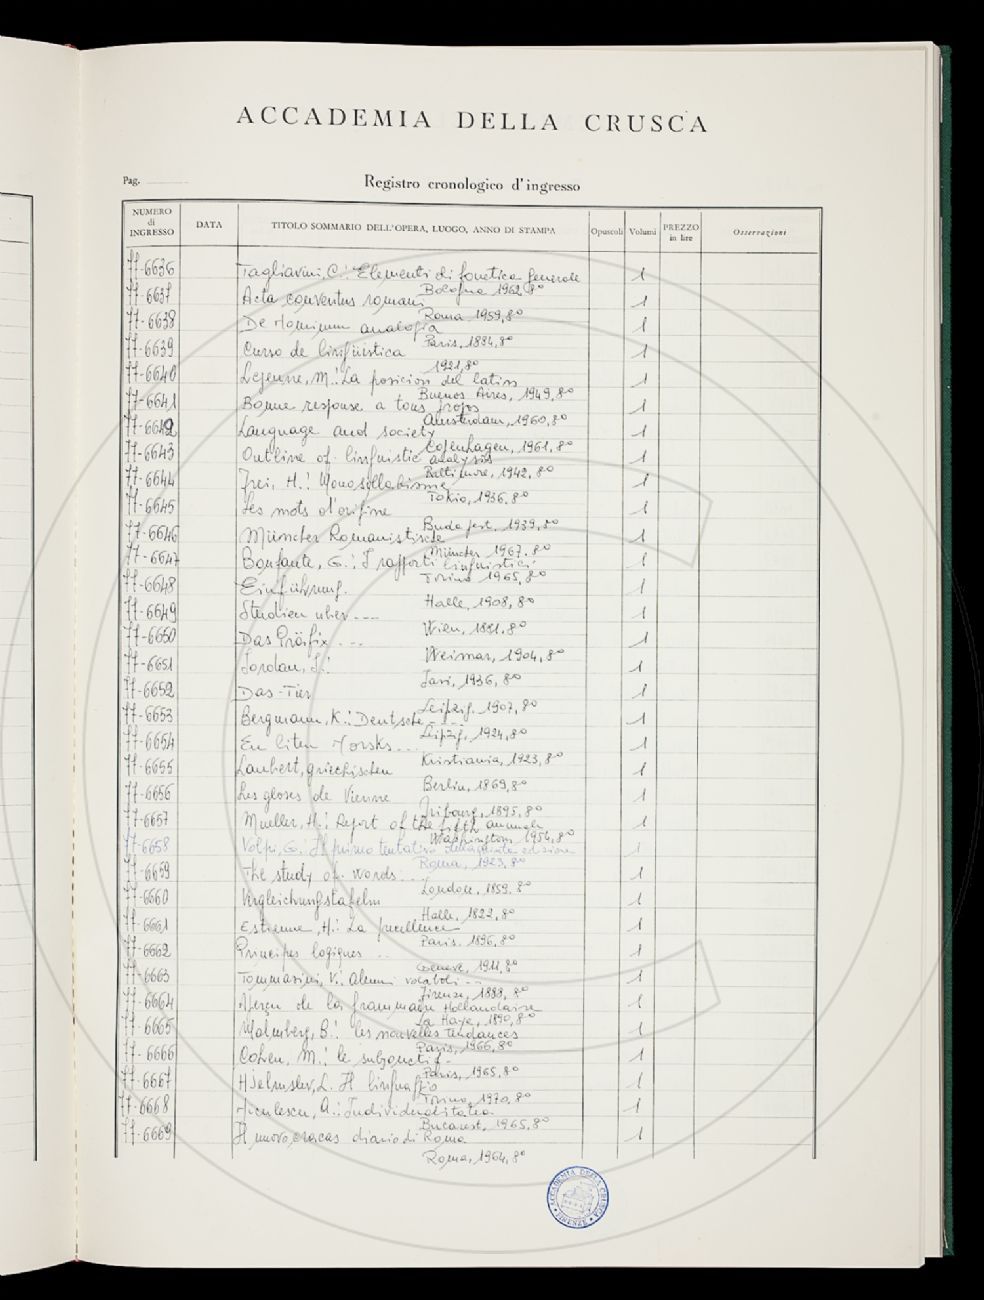 ACCADEMIA DELLA CRUSCA
Pag.
Registro cronologico d'ingresso
NUMERO di INGRESSO DATA TITOLO SOMMARIO DELL'OPERA, LUOGO, ANNO DI STAMPA Opuscoli Volumi PREZZO in lire Osservazioni
77-6636 Tagliavini, C.: Elementi di fonetica generale 1
Bologna 1962, 8°
77-6637 Acta conventus romani 1
Roma 1959, 8°
77-6638 De Hominum analogia 1
Paris, 1884, 8°
77-6639 Curso de lingüistica 1
1921, 8°
77-6640 Lejeune, M.: La posicion del latin 1
Buenos Aires, 1949, 8°
77-6641 Bonne response a tous propos 1
Amsterdam, 1960, 8°
77-6642 Language and society 1
Copenhagen, 1961, 8°
77-6643 Outline of linguistic analysis 1
Baltimore, 1942, 8°
77-6644 Frei, H.: Monosyllabisme 1
Tokio, 1936, 8°
77-6645 Les mots d'origine 1
Budapest, 1939, 8°
77-6646 Müncher Romanistische 1
Müncher 1967, 8°
77-6647 Bonfante, G.: I rapporti linguistici 1
Torino 1965, 8°
77-6648 Einführung. 1
Halle, 1908, 8°
77-6649 Studien uber --- 1
Wien, 1881, 8°
77-6650 Das Präfix ... 1
Weimar, 1904, 8°
77-6651 Iordan, I.: 1
Iasi, 1936, 8°
77-6652 Das Tier 1
Leipzig. 1907, 8°
77-6653 Bergmann, K.: Deutsche --- 1
Leipzig, 1924, 8°
77-6654 En liten Norsks... 1
Kristiania, 1923, 8°
77-6655 Laubert, griechischen 1
Berlin, 1869, 8°
77-6656 Les gloses de Vienne 1
Fribourg, 1895, 8°
77-6657 Mueller, H.: Report of the fifth annual 1
Washington 1954, 8°
77-6658 Volpi, G.: Il primo tentativo della quinta edizione 1
Roma, 1923, 8°
77-6659 The study of words... 1
London, 1859, 8°
77-6660 Vergleichungstafeln 1
Halle, 1822, 8°
77-6661 Estienne, H.: La precellence 1
Paris. 1896, 8°
77-6662 Principes logiques .. 1
Geneve, 1911, 8°
77-6663 Tommasini, V.: Alcuni vocaboli -- 1
Firenze, 1888, 8°
77-6664 Aperçu de la grammaire Hollandaise 1
La Haye, 1890, 8°
77-6665 Malmberg, B.: les nouvelles tendances 1
Paris, 1966, 8°
77-6666 Cohen, M.: le subjonctif - 1
Paris, 1965, 8°
77-6667 Hjelmslev, L. Il linguaggio 1
Torino, 1970, 8°
77-6668 Niculescu, A.: Individualitatea 1
Bucarest, 1965, 8°
77-6669 Il nuovo cracas diario di Roma 1
Roma, 1964, 8°
ACCADEMIA DELLA CRUSCA • FIRENZE •